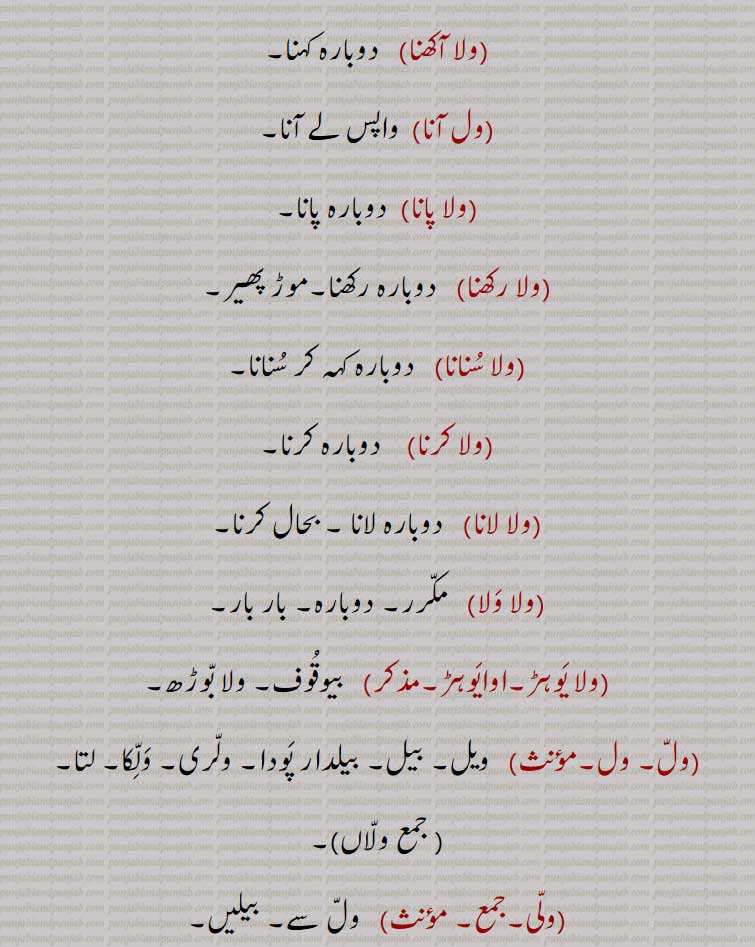 (ولا آکھنا) دوبارہ کہنا۔
(ول آنا) واپس لے آنا۔
(ولا پانا) دوبارہ پانا۔
(ولا رکھنا) دوبارہ رکھنا۔موڑ پھیر۔
(ولا سُنانا) دوبارہ کہہ کر سُنانا۔
(ولا کرنا) دوبارہ کرنا۔
(ولا لانا) دوبارہ لانا ۔ بحال کرنا۔
(ولا وَلا) مکّرر۔ دوبارہ۔ بار بار۔
(ولا یَوہڑ۔اوایَوہڑ۔مذکر) بیوقُوف۔ ولا بّوڑھ۔
(ولّ۔ ول۔مؤنث) ویل۔ بیل۔ بیلدار پَودا۔ ولّری۔ وَلِّکا۔ لتا۔
( جمع ولّاں)۔
(ولّی۔جمع۔ مؤنث) ولّ سے۔ بیلیں۔